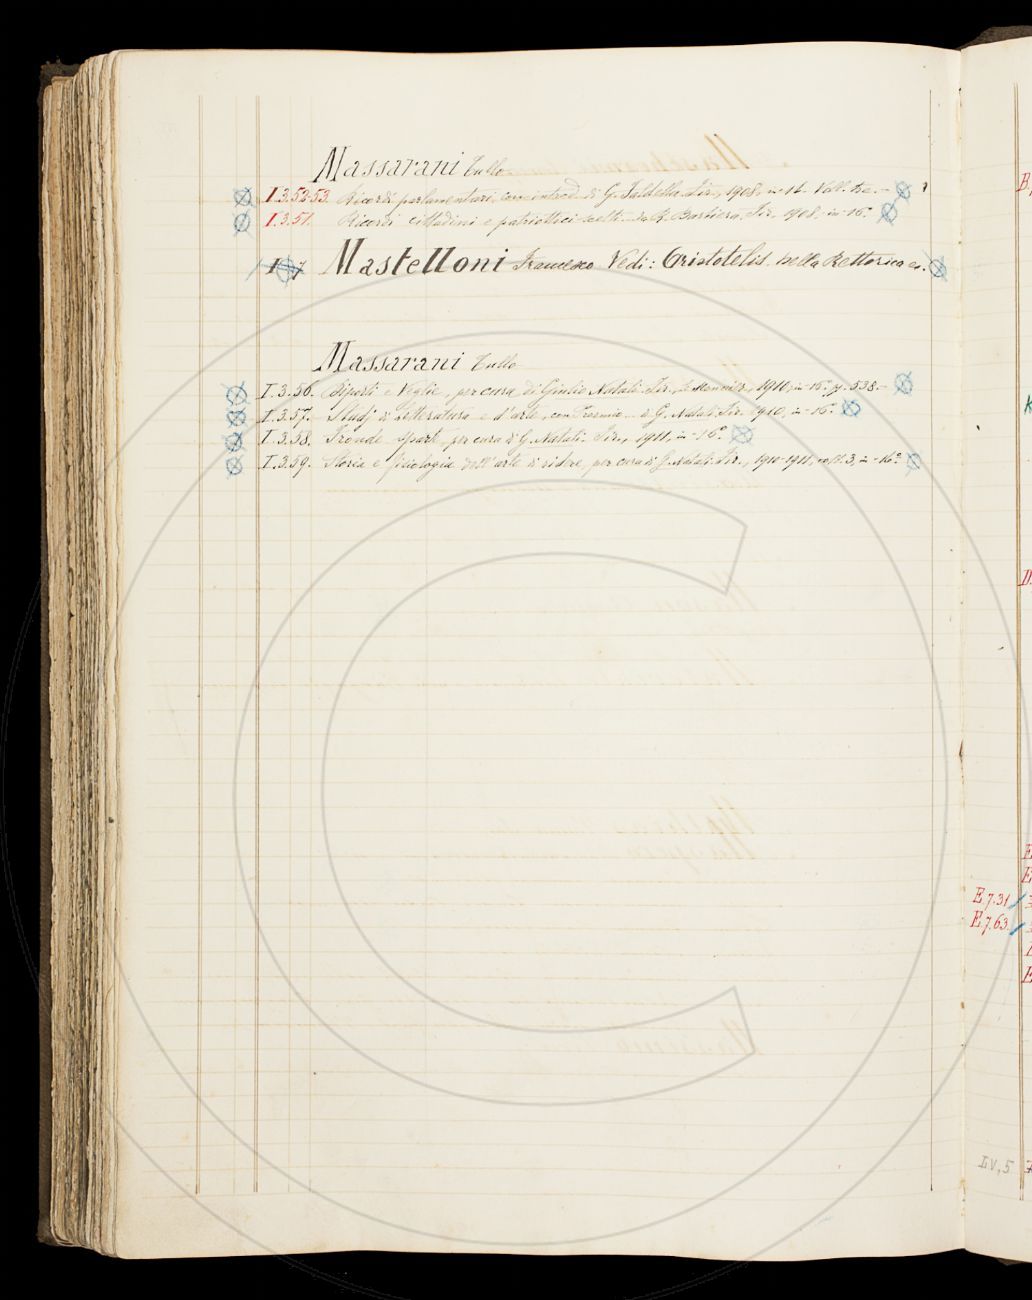 Massarani Tullo
I.3.52-53. Ricordi parlamentari, con introd. di G. Faldella. Fir., 1908, in-16. Voll. due.
I.3.51. Ricordi cittadini e patriottici scelti da R. Barbiera, Fir. 1908, in-16.
Mastelloni Francesco Vedi: Aristotelis. Della Rettorica ec.
Massarani Tullo
I.3.56. Diporti e Veglie, per cura di Giulio Natali. Fir., Le Monnier, 1910, in-16.° p. 538.
I.3.57. Studj di letteratura e d'arte, con Proemio di G. Natali. Fir. 1910, in-16.°
I.3.58. Fronde sparte, per cura di G. Natali. Fir., 1911, in-16.°
I.3.59. Storia e fisiologia dell'arte di ridere, per cura di G. Natali. Fir., 1910-1911, voll. 3, in-16.°
E 7.31
E 7.63.
LV, 5